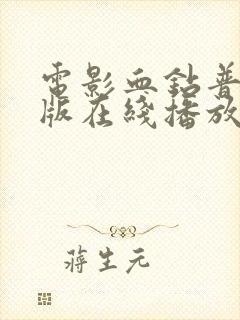 電影血鉆普
版在綫播放
蔣生元